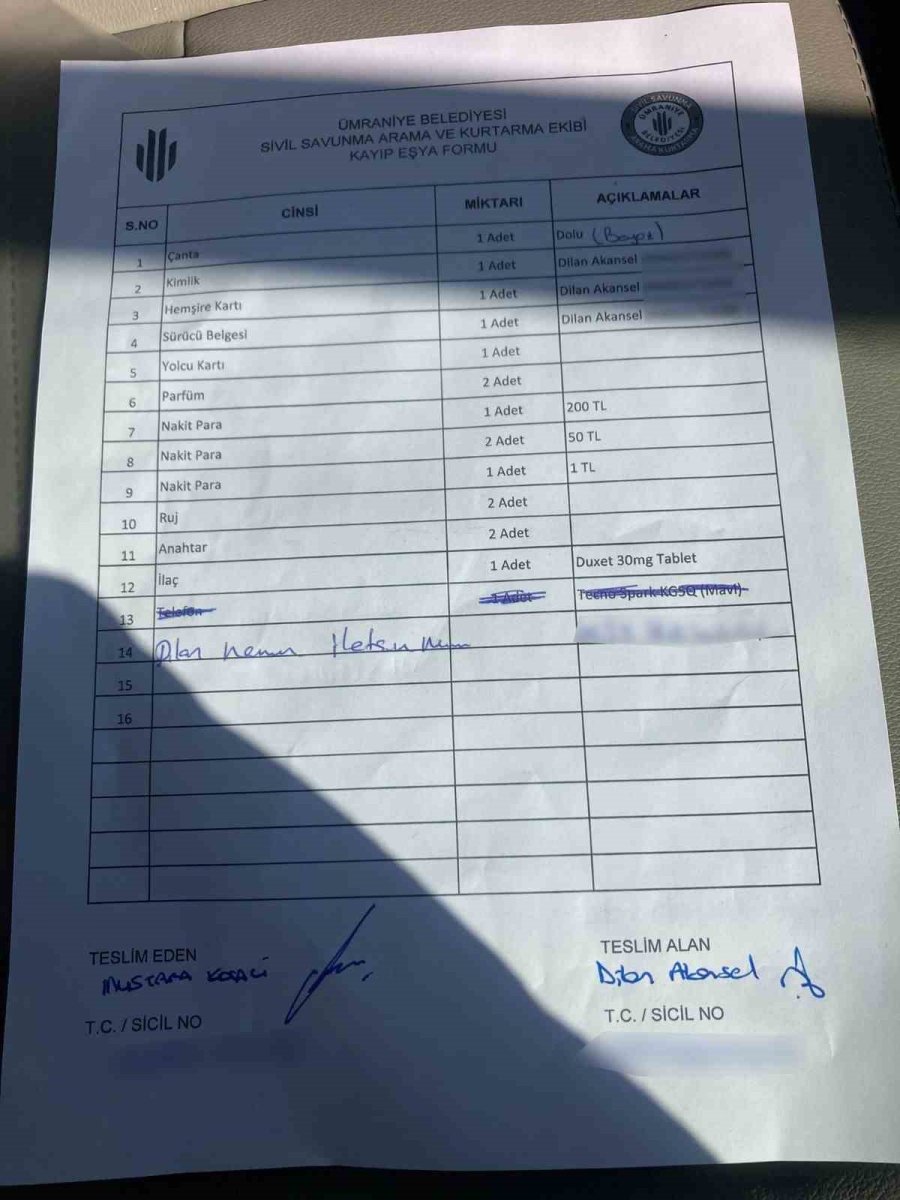 ÜMRANİYE BELEDİYESİ
SİVİL SAVUNMA ARAMA VE KURTARMA EKİBİ
KAYIP EŞYA FORMU
SİVİL SAVUNMA
ÜMRANİYE
BELEDİYESİ
ARAMA KURTARMA
S.NO CİNSİ MİKTARI AÇIKLAMALAR
1 Çanta 1 Adet Dolu (Beyaz)
2 Kimlik 1 Adet Dilan Akansel
3 Hemşire Kartı 1 Adet Dilan Akansel
4 Sürücü Belgesi 1 Adet Dilan Akansel
5 Yolcu Kartı 1 Adet
6 Parfüm 2 Adet
7 Nakit Para 1 Adet 200 TL
8 Nakit Para 2 Adet 50 TL
9 Nakit Para 1 Adet 1 TL
10 Ruj 2 Adet
11 Anahtar 2 Adet
12 İlaç 1 Adet Duxet 30mg Tablet
13 Telefon 1 Adet Tecno Spark KG5Q (Mavi)
14 Dilan
15
16
TESLİM EDEN TESLİM ALAN
MUSTAFA Dilan Akansel
T.C. / SİCİL NO T.C. / SİCİL NO